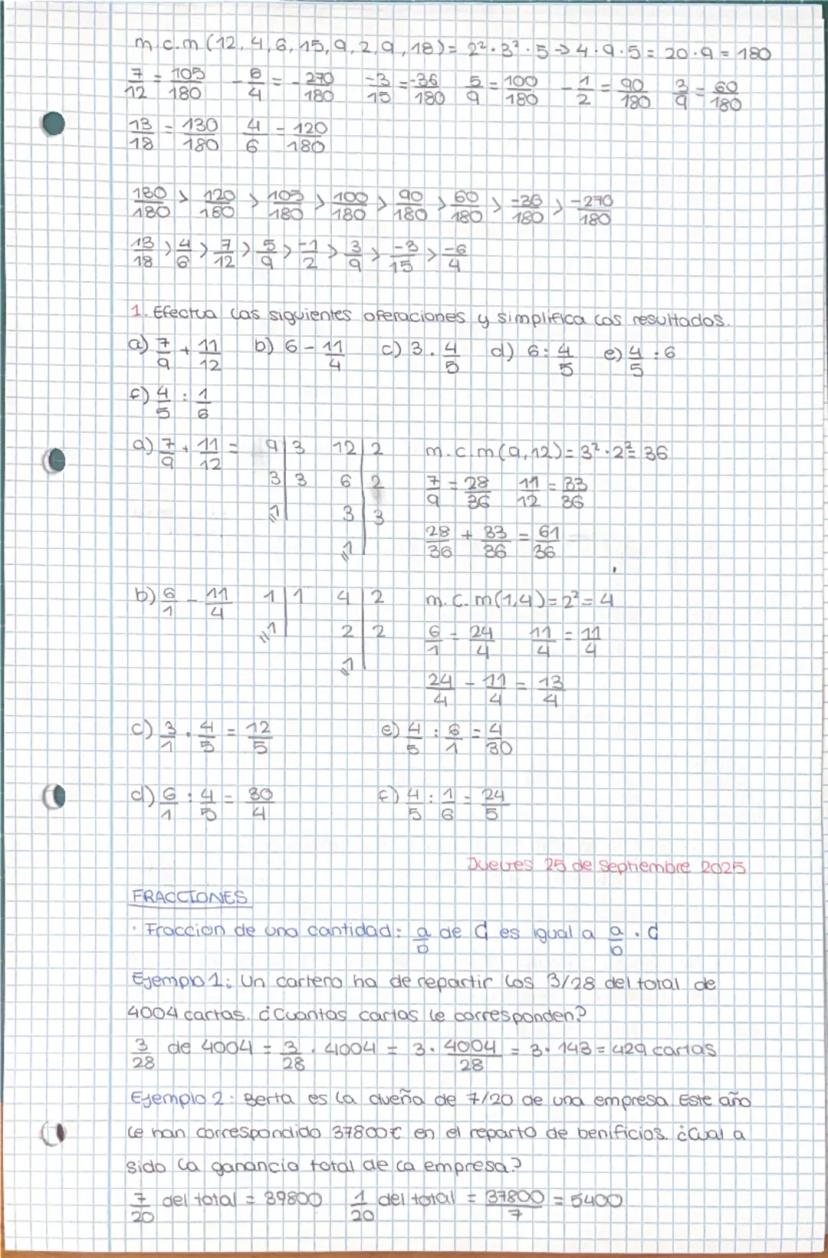 m.c.m (12, 4, 6, 15, 9, 2, 9, 18) = 2² · 3² · 5 → 4 · 9 · 5 = 20 · 9 = 180
7/12 = 105/180 - 6/4 = -270/180 -3/15 = -36/180 5/9 = 100/180 - 1/2 = 90/180 3/9 = 60/180
13/18 = 130/180 4/6 = 120/180
180/180 > 120/180 > 105/180 > 100/180 > 90/180 > 60/180 > -36/180 > -270/180
13/18 > 4/6 > 7/12 > 5/9 > -1/2 > 3/9 > -3/15 > -6/4
1. Efectua las siguientes operaciones y simplifica los resultados.
a) 7/9 + 11/12 b) 6 - 11/4 c) 3 · 4/5 d) 6 : 4/5 e) 4/5 : 6
f) 4/5 : 1/6
a) 7/9 + 11/12 = 9 | 3 12 | 2 m.c.m (9, 12) = 3² · 2² = 36
3 | 3 6 | 2 7/9 = 28/36 11/12 = 33/36
1 | 3 | 3 28/36 + 33/36 = 61/36
1 |
b) 6/1 - 11/4 1 | 1 4 | 2 m.c.m (1,4) = 2² = 4
1 | 2 | 2 6/1 = 24/4 11/4 = 11/4
1 | 24/4 - 11/4 = 13/4
c) 3/1 · 4/5 = 12/5 e) 4/5 : 6/1 = 4/30
d) 6/1 : 4/5 = 30/4 f) 4/5 : 1/6 = 24/5
Jueves 25 de Septiembre 2025
FRACCIONES
· Fraccion de una cantidad: a/b de C es igual a a/b · C
Ejemplo 1: Un cartero ha de repartir los 3/28 del total de
4004 cartas. ¿Cuantas cartas le corresponden?
3/28 de 4004 = 3/28 · 4004 = 3 · 4004/28 = 3 · 143 = 429 cartas
Ejemplo 2: Berta es la dueña de 7/20 de una empresa Este año
le han correspondido 37800€ en el reparto de benificios. ¿Cual a
sido la ganancia total de la empresa?
7/20 del total = 39800 1/20 del total = 37800/7 = 5400